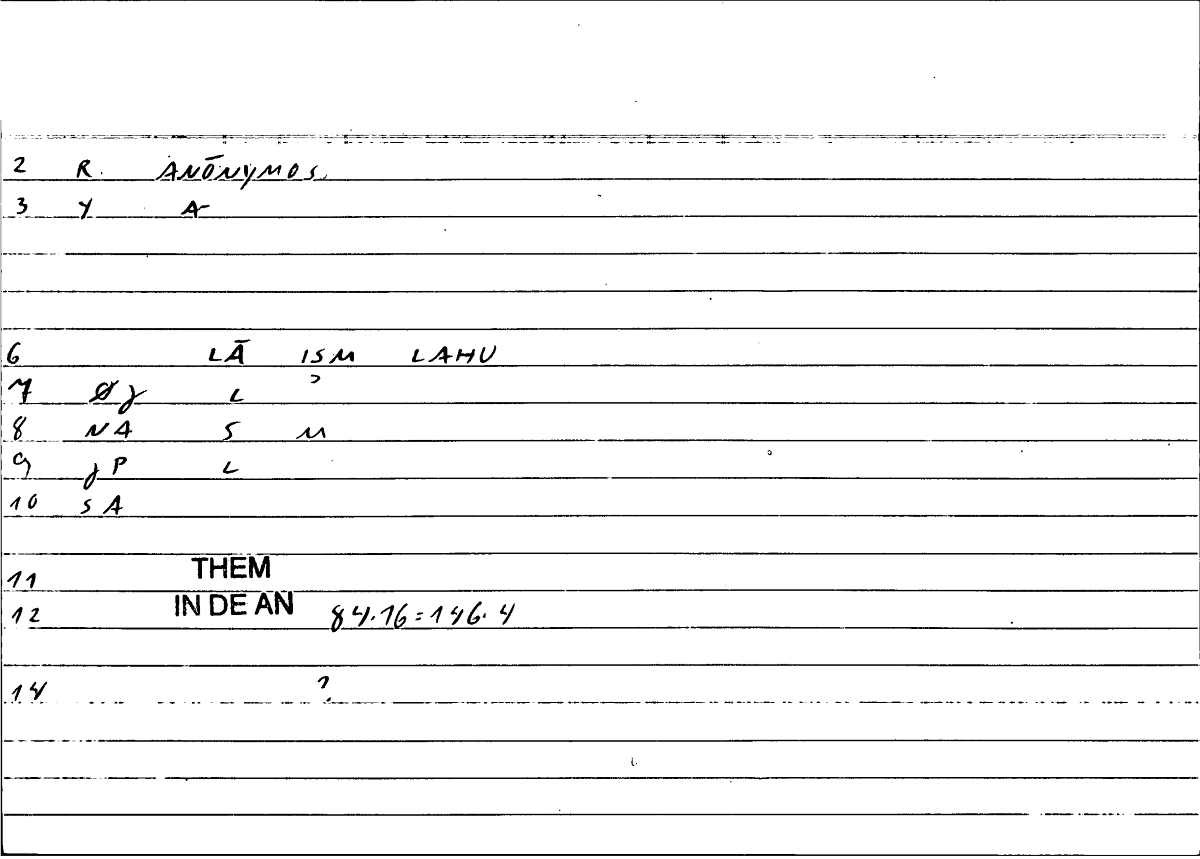 2 R. ANŌNYMOS.
3 Y A
6 LĀ ISM LAHU
7 Øγ L ?
8 NA S M
9 γP L
10 SA
11 THEM
12 IN DE AN 84.16=146.4
14 ?